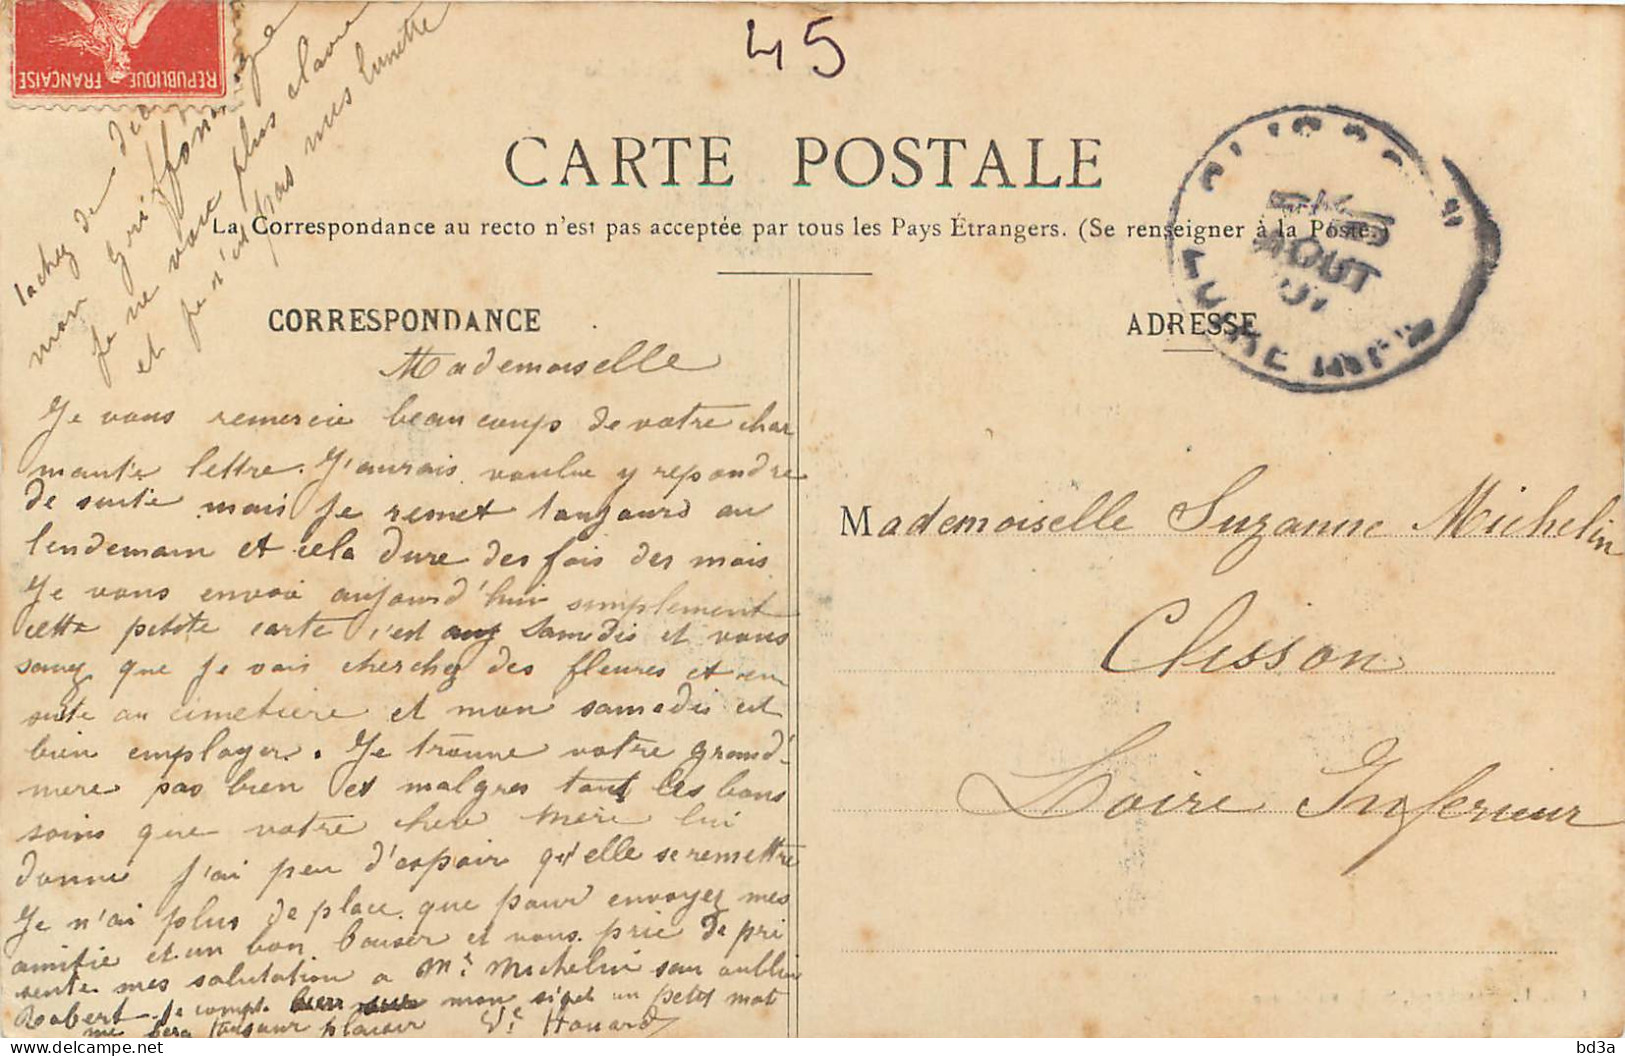 45
REPUBLIQUE FRANÇAISE
CARTE POSTALE
La Correspondance au recto n'est pas acceptée par tous les Pays Étrangers. (Se renseigner à la Poste.)
CORRESPONDANCE
ADRESSE
AOUT
07
tachez de
mon Griffonnage
je ne vois plus claire
et je n'est pas mes lunette
Mademoiselle
Je vous remercie beaucoups de votre char
mante lettre. J'aurais voulue y repondre
de suite mais je remet toujours au
lendemain et cela dure des fois des mois
Je vous envoie aujourd'hui simplement
cette petite carte c'est Samdis et vous
savez que je vais cherchez des fleures et en
suite au cimetière et mon samedis est
bien employer. Je trouve votre grand'
mere pas bien et malgres tout les bons
soins que votre cher mère lui
donne j'ai peu d'espoir qu'elle se remettre
Je n'ai plus de place que pour envoyez mes
amitie et un bon baiser et vous prie de pré
sente mes salutation a Mr Michelin sans oublier
Robert je compt mon un petit mot
me fera toujour plaisir Ve Houard
Mademoiselle Suzanne Michelin
Clisson
Loire Inferieur
bd3a